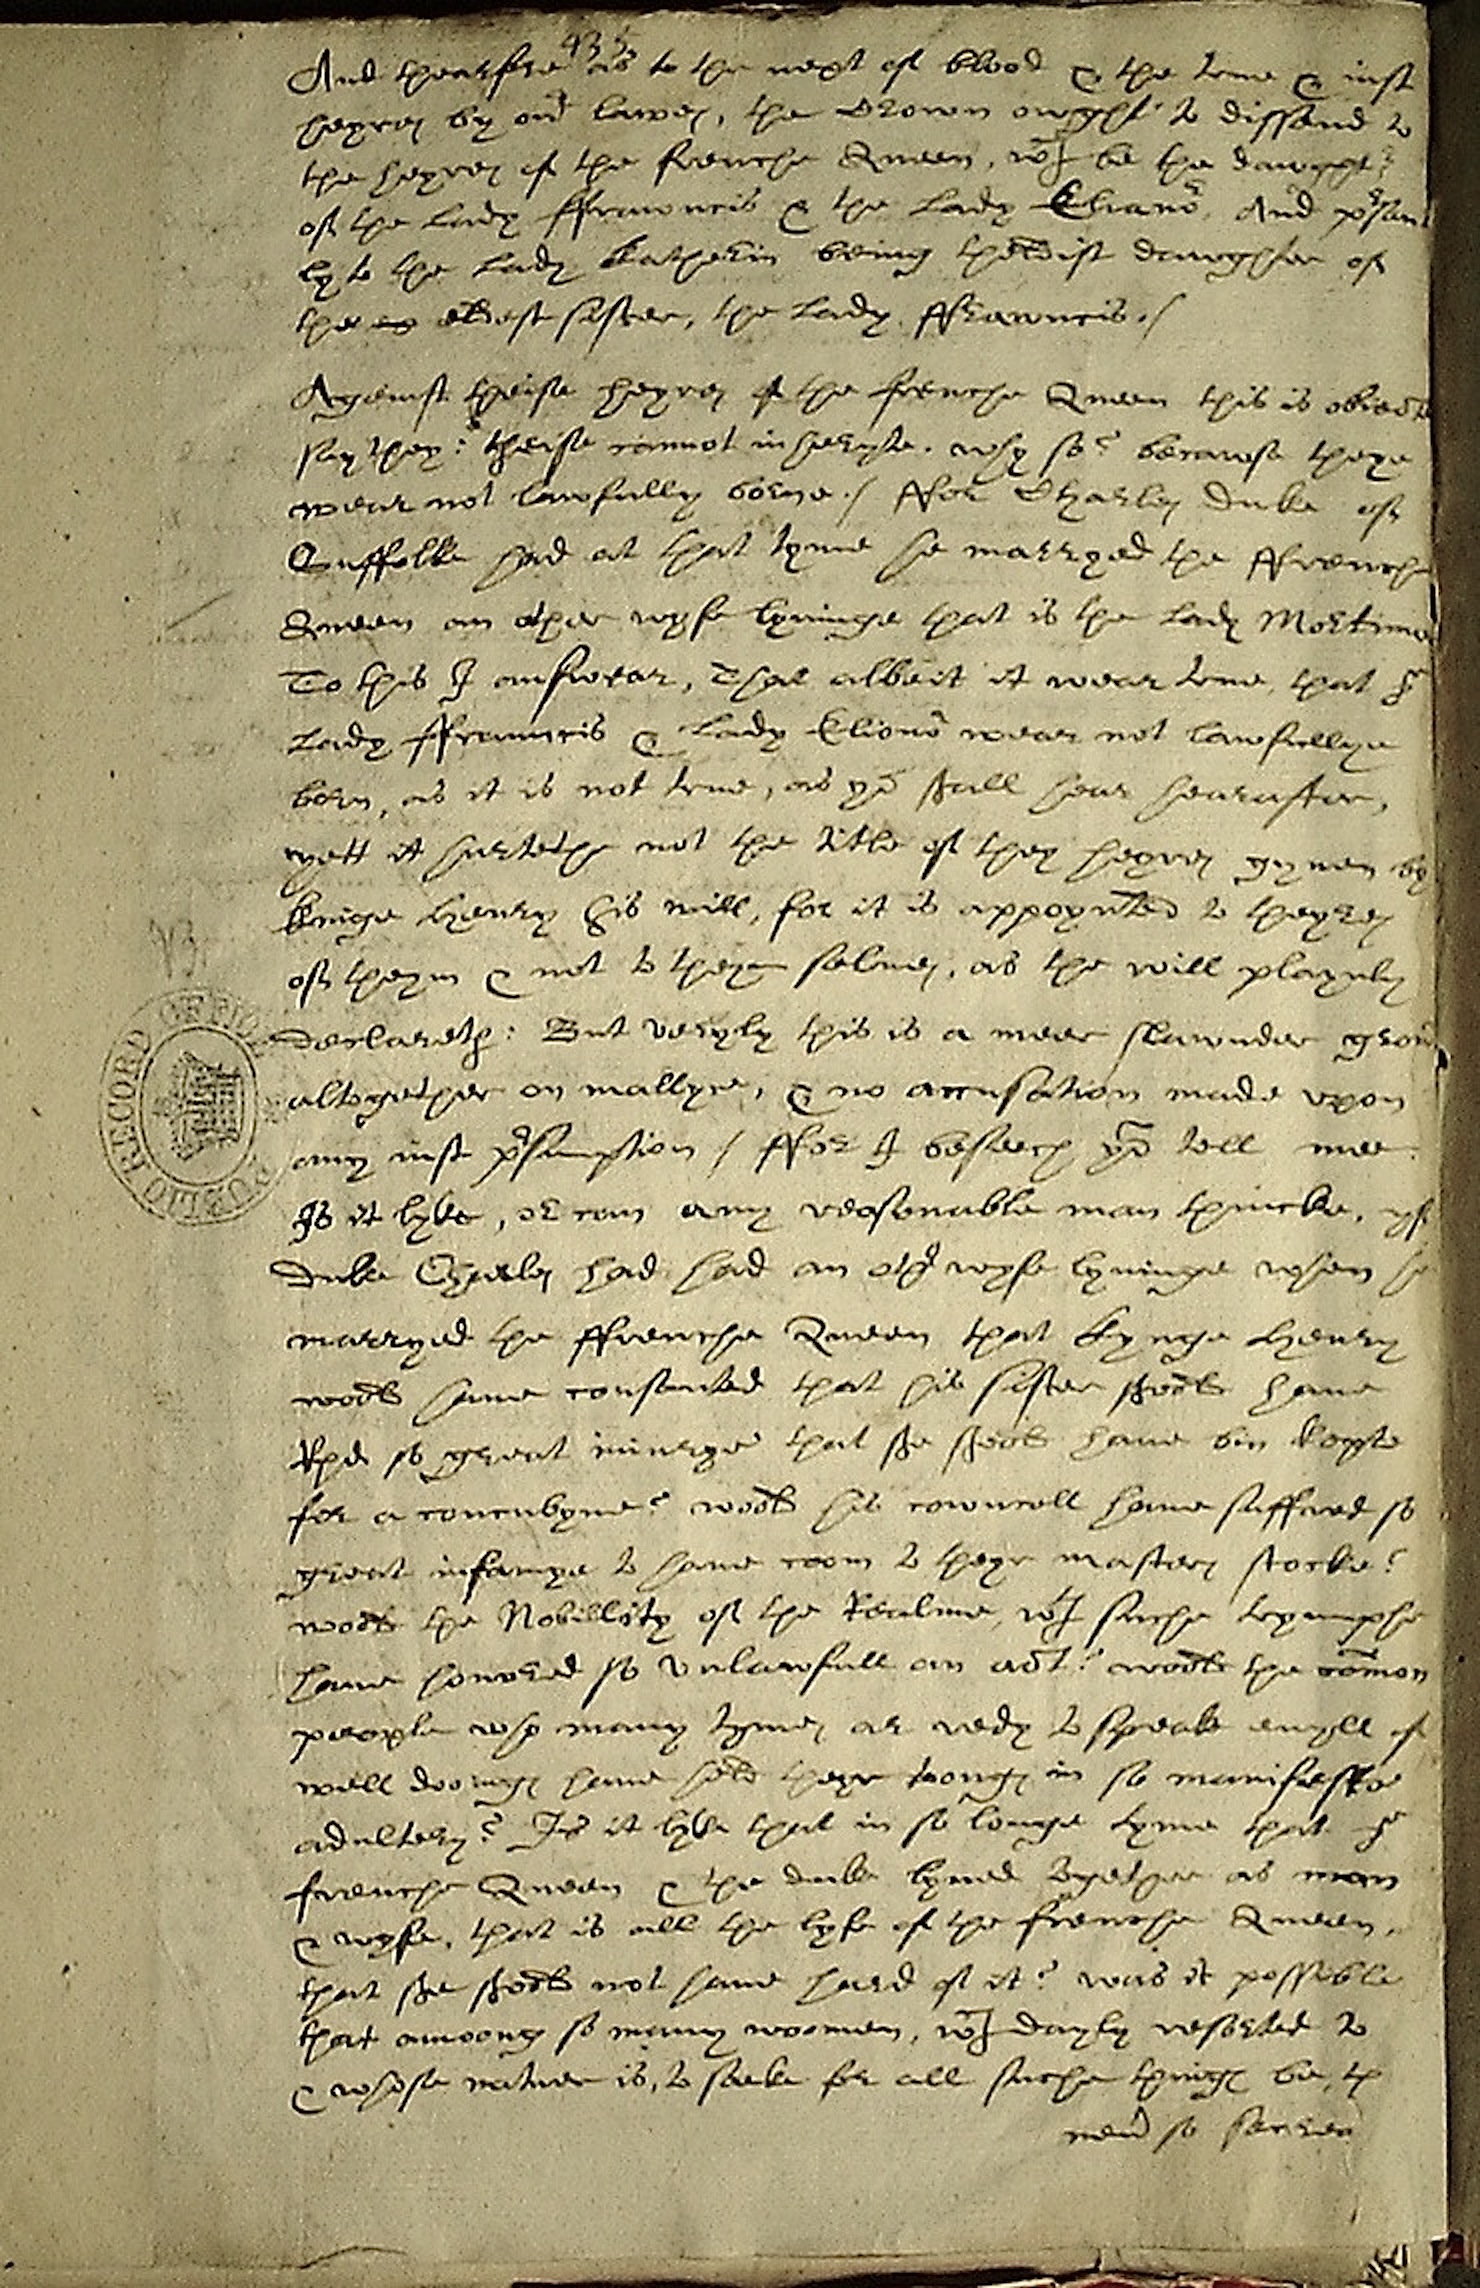 And thearfore as to the next of blood & the trew & iust
heyres by our lawes, the Crown owght to dissend to
the heyres of the frenche Queen, wch be the dawght
of the Lady ffrauncis & the Lady Elianor. And presant
ly to the Lady Katherin being theldist dawghter of
the eldest sister, the Lady ffrawncis./
Ageinst theise heyres of the frenche Queen this is obiecte
say they: theise cannot inheryte. why so? becawse theye
wear not lawfully borne./ ffor Charles Duke of
Suffolke had at that tyme he marryed the ffrenche
Queen an other wyfe lyvinge that is the Lady Mortimer
To this I answear, That albeit it wear trew, that the
Lady ffrauncis & Lady Elionor wear not lawfullye
born, as it is not trew, as you shall hear hearafter,
yett it hurteth not the title of they heyres gyven by
kinge Henry his will, for it is appoynted to theyres
of theym & not to theym selves, as the will playnly
declareth: But veryly this is a meer slawnder grown
altogether on mallyce, & no accusation made vpon
any iust presumption / ffor I beseech you tell mee
Is it lyke, or can any reasonable man thincke, yf
Duke Charles had had an other wyfe lyvinge when he
marryed the ffrenche Queen that kynge Henry
wold have consented that his sister shold have
so great iniurye that she shold have bin kepte
for a concubyne? wold his cowncell have suffred so
great infamye to have room to theyr masters stocke?
wold the Nobillity of the Realme, wth suche tryumphe
have honored so vnlawfull an act? wold the comon
people who many tymes ar redy to speake evyll of
well dooings have held theyr toongs in so manifest
adultery? Is it lyke that in so longe tyme that the
frenche Queen & the duke lyved together as man
& wyfe, that is all the lyfe of the frenche Queen,
that she shold not have hard of it? was it possible
that amoong so many woomen, wch dayly resorted to
& whose nature is, to seeke for all suche things be, th
never so secret
PUBLIC RECORD OFFICE